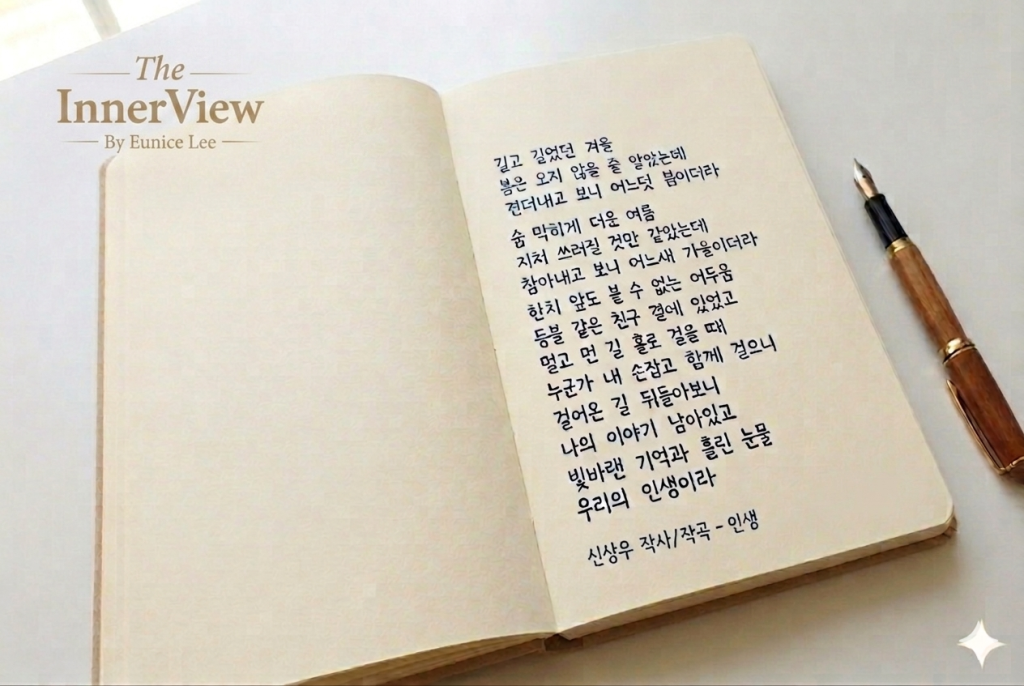 The
InnerView
By Eunice Lee
길고 길었던 겨울
봄은 오지 않을 줄 알았는데
견뎌내고 보니 어느덧 봄이더라
숨 막히게 더운 여름
지쳐 쓰러질 것만 같았는데
참아내고 보니 어느새 가을이더라
한치 앞도 볼 수 없는 어두움
등불 같은 친구 곁에 있었고
멀고 먼 길 홀로 걸을 때
누군가 내 손잡고 함께 걸으니
걸어온 길 뒤돌아보니
나의 이야기 남아있고
빛바랜 기억과 흘린 눈물
우리의 인생이라
신상우 작사/작곡 - 인생